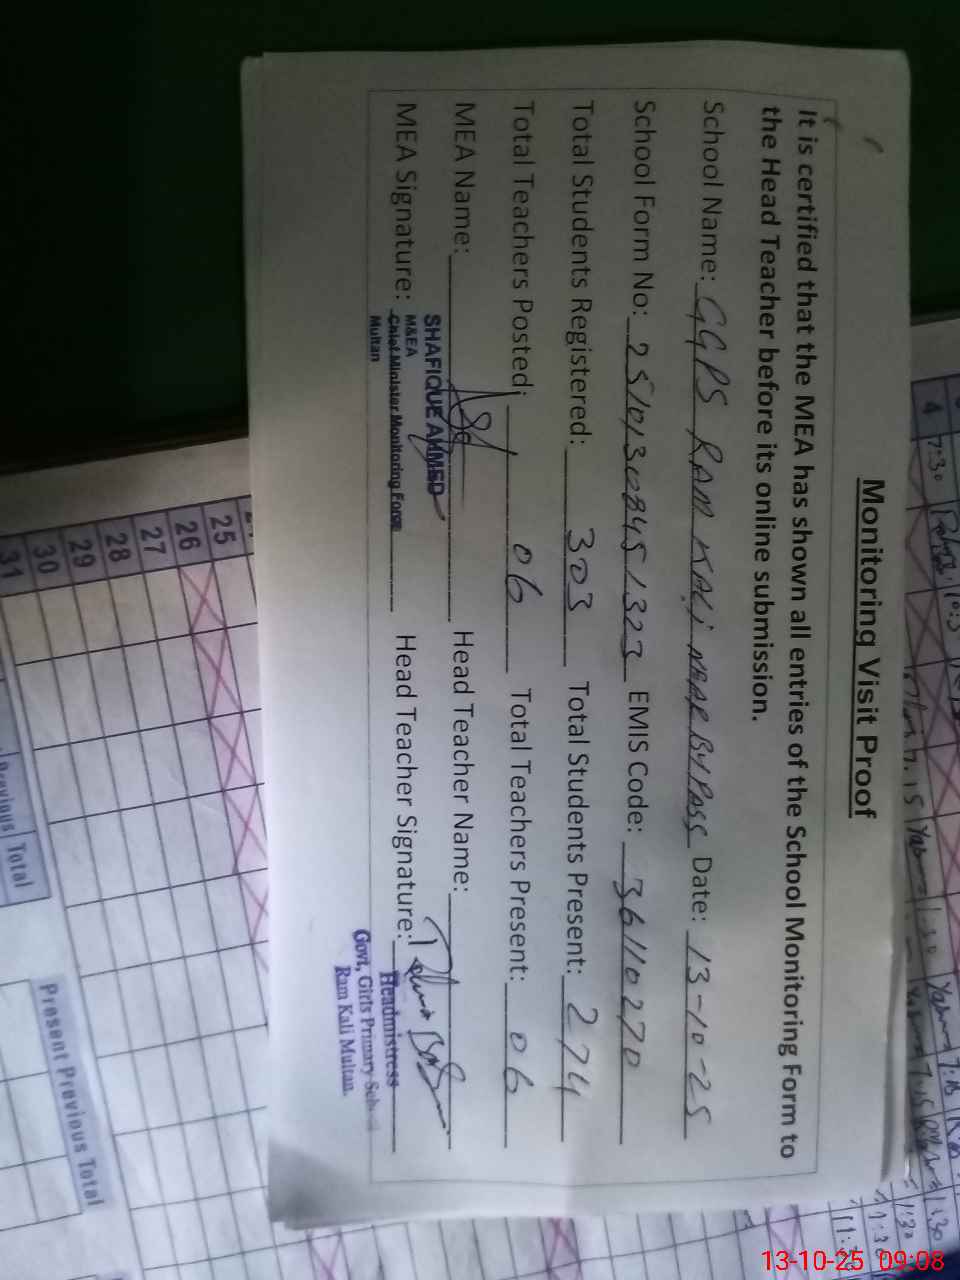 Monitoring Visit Proof
It is certified that the MEA has shown all entries of the School Monitoring Form to
the Head Teacher before its online submission.
School Name: GGPS RAM KALi NEAR BYPASS Date: 13-10-25
School Form No: 25101308451323 EMIS Code: 36110270
Total Students Registered: 303 Total Students Present: 274
Total Teachers Posted: 06 Total Teachers Present: 06
MEA Name: Head Teacher Name:
SHAFIQUE AHMED
MEA Signature: Head Teacher Signature:
M&EA
Chief Minister Monitoring Force
Multan
Headmistress
Govt, Girls Primary School
Ram Kali Multan.
4 7:30
25
26
27
28
29
30
31
Previous Total
Present Previous Total
13-10-25 09:08